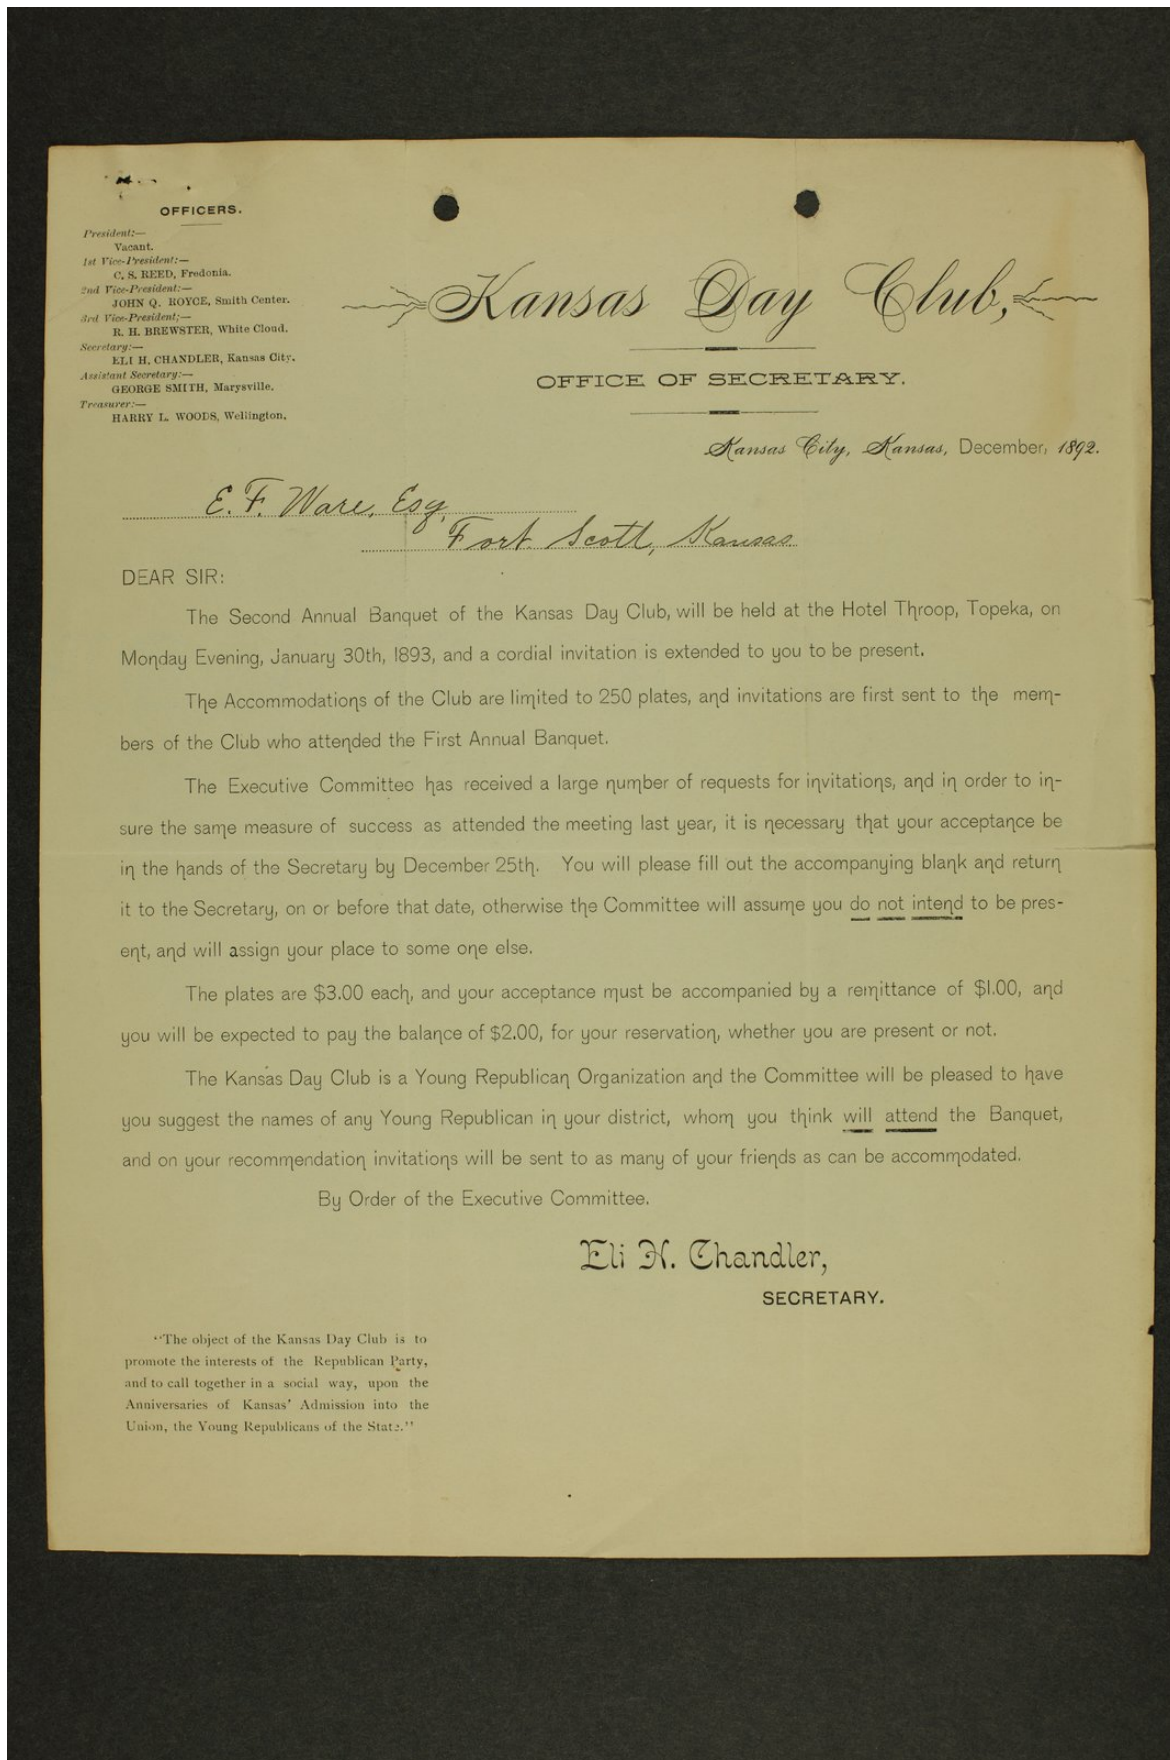 OFFICERS.
President:—
Vacant.
1st Vice-President:—
C. S. REED, Fredonia.
2nd Vice-President:—
JOHN Q. ROYCE, Smith Center.
3rd Vice-President;—
R. H. BREWSTER, White Cloud.
Secretary:—
ELI H. CHANDLER, Kansas City.
Assistant Secretary:—
GEORGE SMITH, Marysville.
Treasurer:—
HARRY L. WOODS, Wellington.
Kansas Day Club,
OFFICE OF SECRETARY.
Kansas City, Kansas, December, 1892.
E. F. Ware, Esq,
Fort Scott, Kansas
DEAR SIR:
The Second Annual Banquet of the Kansas Day Club, will be held at the Hotel Throop, Topeka, on
Monday Evening, January 30th, 1893, and a cordial invitation is extended to you to be present.
The Accommodations of the Club are limited to 250 plates, and invitations are first sent to the mem-
bers of the Club who attended the First Annual Banquet.
The Executive Committee has received a large number of requests for invitations, and in order to in-
sure the same measure of success as attended the meeting last year, it is necessary that your acceptance be
in the hands of the Secretary by December 25th. You will please fill out the accompanying blank and return
it to the Secretary, on or before that date, otherwise the Committee will assume you do not intend to be pres-
ent, and will assign your place to some one else.
The plates are $3.00 each, and your acceptance must be accompanied by a remittance of $1.00, and
you will be expected to pay the balance of $2.00, for your reservation, whether you are present or not.
The Kansas Day Club is a Young Republican Organization and the Committee will be pleased to have
you suggest the names of any Young Republican in your district, whom you think will attend the Banquet,
and on your recommendation invitations will be sent to as many of your friends as can be accommodated.
By Order of the Executive Committee.
Eli H. Chandler,
SECRETARY.
"The object of the Kansas Day Club is to
promote the interests of the Republican Party,
and to call together in a social way, upon the
Anniversaries of Kansas' Admission into the
Union, the Young Republicans of the State."